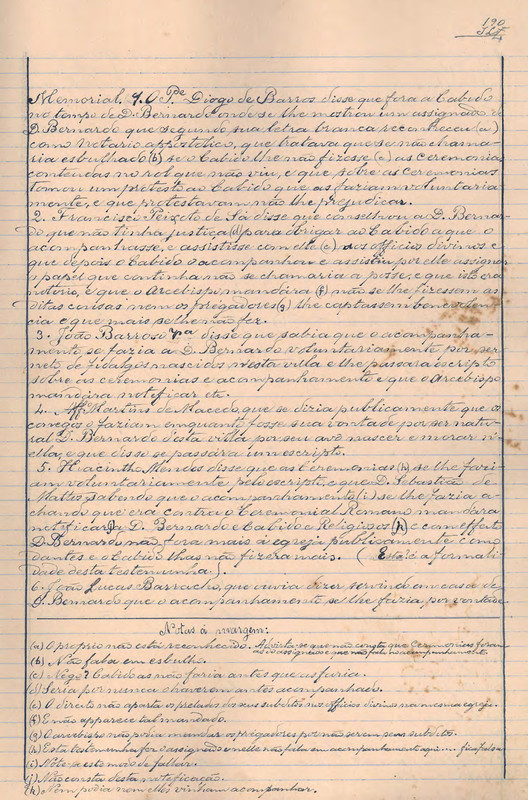 190
Memorial. 1. O Pde Diogo de Barros disse que fora a Cabido
no tempo de D. Bernardo onde se lhe mostrou um assignado de
D. Bernardo que segundo sua letra branca reconheceu (a)
como Notario apostolico, que tratava que se não chama-
ria esbulhado (b) se o Cabido lhe não fizesse (c) as Ceremonias
contendas no rol que não viu, e que sobre as Ceremonias
tomou um protesto ao Cabido que as faziam voluntaria
mente, e que protestavam não lhe prejudicar.
2. Francisco Peixoto de Sá disse que conselhou a D. Bernar-
do que não tinha justiça (d) para obrigar ao Cabido a que o
acompanhasse, e assistisse com elle (e) aos officios divinos e
que depois o Cabido o acompanhou e assistiu por elle assignar
o papel que continha não se chamaria a posse, e que isto era
notorio, e que o Arcebispo mandára (f) não se lhe fizessem as
ditas cousas nem os pregadores (g) lhe captassem benevolen-
cia e que mais se lhe não fez.
3. João Barroso disse que sabia que o acompanha-
mento se fazia a D. Bernardo voluntariamente por ser
neto de fidalgos nascidos nesta villa e lhe passára escripto
sobre as ceremonias e acompanhamento e que o Arcebispo
mandára notificar etc.
4. Aff. Martins de Macedo, que se dizia publicamente que os
conegos o faziam emquanto fosse sua vontade por ser natu-
ral D. Bernardo desta villa por seu avô nascer e morar n'
ella, e que disse se passára um escripto.
5. Hiacintho Mendes disse que as Ceremonias (h) se lhe fazi-
am voluntariamente pelo escripto, e que D. Sebastião de
Mattos, sabendo que o acompanhamento (i) se lhe fazia, a-
chando que era contra o Ceremonial Romano mandara
notificar (j) a D. Bernardo e Cabido e Religiosos (k) e com effeito
D. Bernardo não fora mais á egreja publicamente como
dantes e o Cabido lhas não fizera mais. (Esta é a formali-
dade desta testemunha).
6. João Lucas Barracho, que ouvia dizer, servindo em casa de
D. Bernardo que o acompanhamento se lhe fazia, por vontade
Notas á margem:
(a) O proprio não está reconhecido. Advirta-se que não consta que Ceremonias foram
as do assignado e que não fala no acompanhamento.
(b) Não fala em esbulho.
(c) Nego? Cabido as não faria antes que as fazia.
(d) Seria por nunca o haverem antes acompanhado.
(e) O direito não aparta os prelados dos seus subditos nos officios divinos na mesma egreja.
(f) E não apparece tal mandado.
(g) O arcebispo não podia mandar os pregadores por não serem seus subditos.
(h) Esta testemunha fez o assignado e nelle não fala em acompanhamento aqui....
(i) Note-se este modo de fallar.
(j) Não consta desta notificação.
(k) Nem podia nem elles vinham acompanhar.